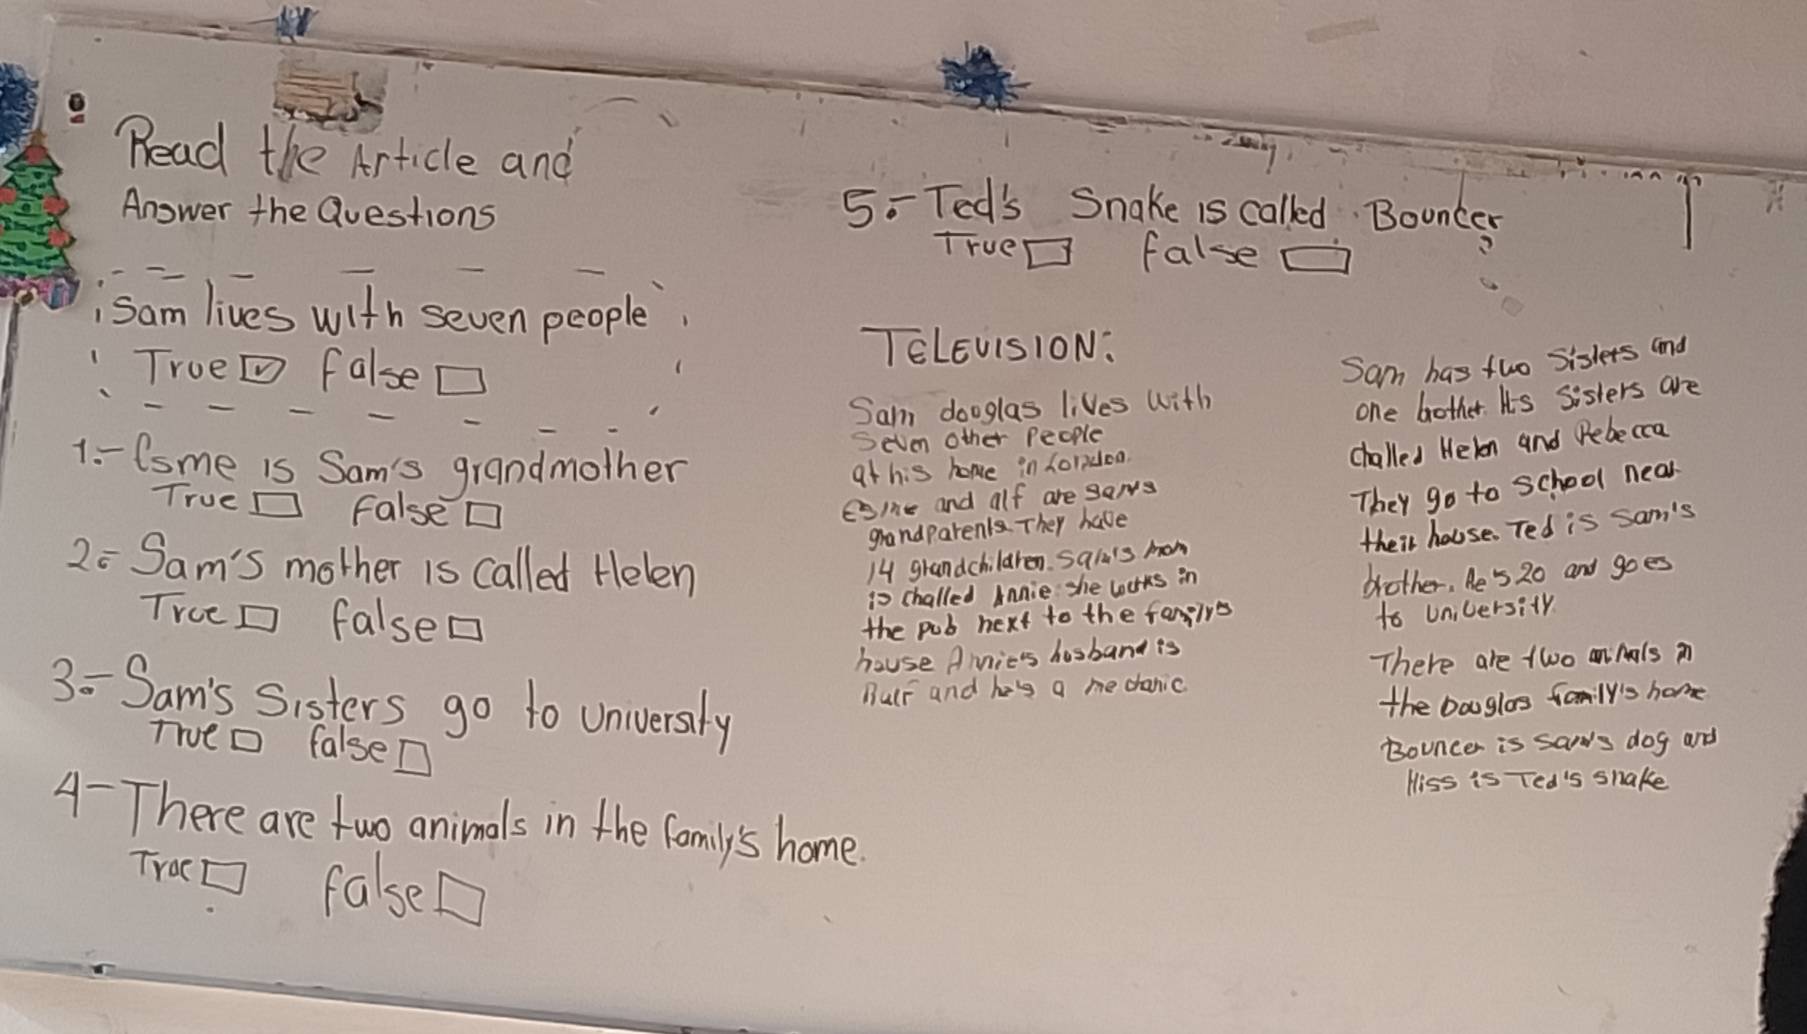 Read the Article and
Answer the Questions
Sam lives with seven people
True ☑ false ☐
1.- Esme is Sam's grandmother
True ☐ False ☐
2.- Sam's mother is called Helen
True ☐ false ☐
3.- Sam's Sisters go to University
True ☐ false ☐
4- There are two animals in the family's home.
True ☐ false ☐
5.- Ted's Snake is called Bouncer
True ☐ false ☐
TELEVISION:
Sam douglas lives with
Seven other People
at his home in London.
Esme and alf are Sam's
grandparents. They have
14 grandchildren. Sam's mom
is challed Annie. she works in
the pub next to the family's
house Annie's husband is
and he's a mechanic
Sam has two Sisters and
one brother. His Sisters are
challed Helen and Rebecca
They go to school near
their house. Ted is Sam's
brother. He's 20 and goes
to University.
There are two animals in
the Douglas family's home
Bouncer is Sam's dog and
Hiss is Ted's snake